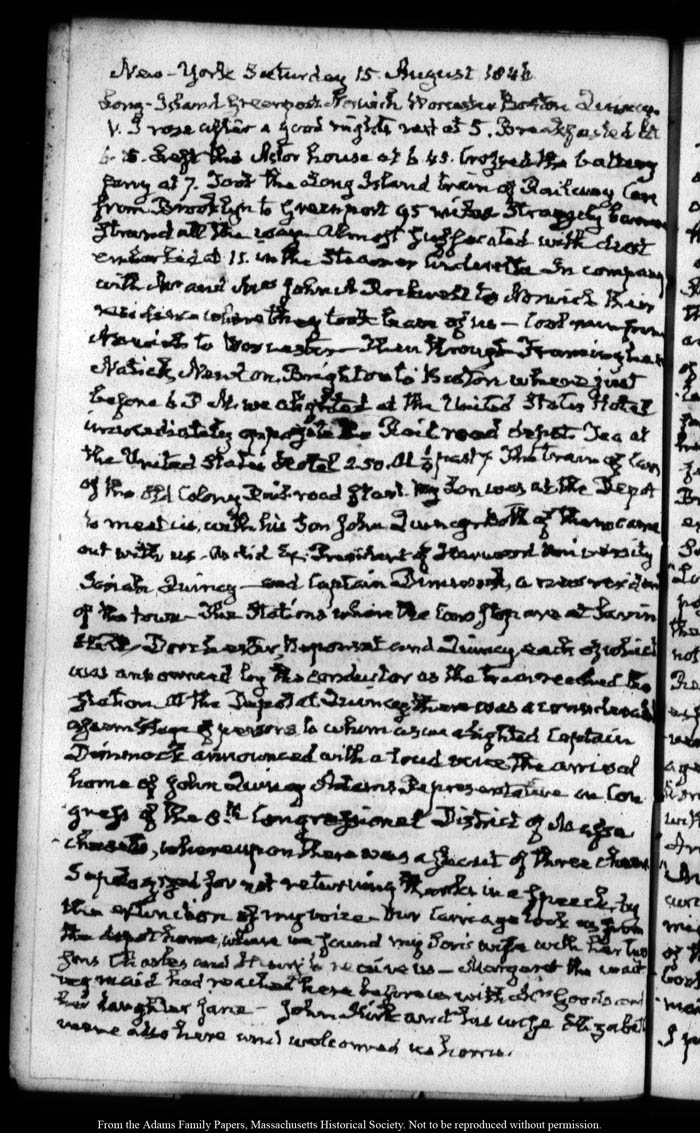 New-York Saturday 15. August 1846
Long-Island Greenport Norwich Worcester Boston Quincy.
V. I rose after a good nights rest at 5. Breakfasted at
6-15. Left the Astor house at 6 45. crossed the battery
ferry at 7. Took the Long Island train of Railway Cars
from Brooklyn to Greenport 95 miles strangely barren
strand all the way. Almost suffocated with dust
embarked at 11. in the Steamer in company
with Mr and Mrs John A Rockwell to Norwich their
residence where they took leave of us —
Norwich to Worcester — Then through Framingham
Natick, Newton, Brighton to Boston where just
before 6 P.M. we alighted at the United States Hotel
immediately opposite the Rail road depot. Tea at
the United States Hotel 2.50. At ½ past 7 The train of Cars
of the Old Colony Rail-road start. My Son was at the Depot
to meet us, with his Son John Quincy. both of them came
out with us — as did Ex-President of Harvard University
Josiah Quincy — and Captain Dimmock, a new resident
of the town — The Stations where the Cars stop are at Savin
Hill, Dorchester, Neponset and Quincy, each of which
was announced by the conductor as the train reached the
Station. At the Depot at Quincy there was a considerable
assemblage of persons to whom as we alighted Captain
Dimmock announced with a loud voice the arrival
home of John Quincy Adams Representative in Con-
gress of the 8.th Congressional District of Massa-
chusetts, whereupon there was a shout of three cheers
I apologized for not returning thanks in a speech, by
the extinction of my voice — Our Carriage took us from
the depot home, where we found my Son's wife with her two
Sons Charles and Henry to receive us — Margaret the wait-
ing maid had reached here before us with and
her daughter Jane — John Kirk and his wife Elizabeth
were also here and welcomed us home.
From the Adams Family Papers, Massachusetts Historical Society. Not to be reproduced without permission.